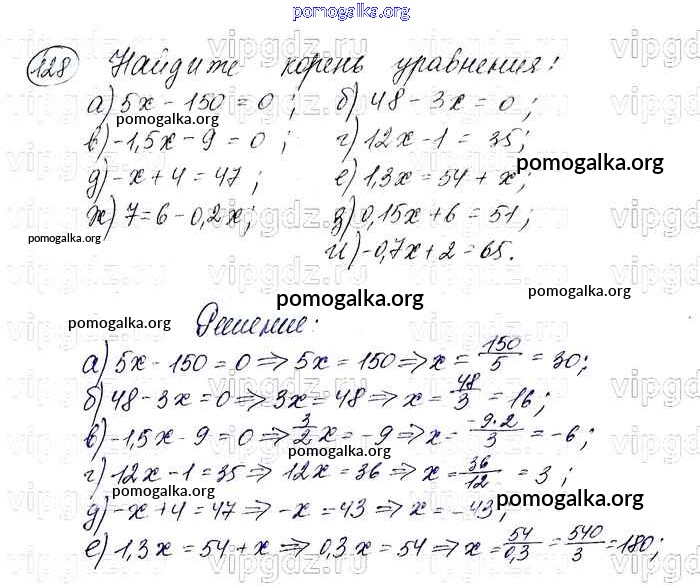 pomogalka.org
128 Найдите корень уравнения:
а) 5x - 150 = 0; б) 48 - 3x = 0;
pomogalka.org
в) -1,5x - 9 = 0; г) 12x - 1 = 35;
pomogalka.org
д) -x + 4 = 47; е) 1,3x = 54 + x;
ж) 7 = 6 - 0,2x; з) 0,15x + 6 = 51;
pomogalka.org
и) -0,7x + 2 = 65.
pomogalka.org
pomogalka.org
pomogalka.org Решение:
а) 5x - 150 = 0 ⇒ 5x = 150 ⇒ x = 150/5 = 30;
б) 48 - 3x = 0 ⇒ 3x = 48 ⇒ x = 48/3 = 16;
в) -1,5x - 9 = 0 ⇒ 3/2 x = -9 ⇒ x = -9·2/3 = -6;
pomogalka.org
г) 12x - 1 = 35 ⇒ 12x = 36 ⇒ x = 36/12 = 3;
pomogalka.org
pomogalka.org
д) -x + 4 = 47 ⇒ -x = 43 ⇒ x = -43;
е) 1,3x = 54 + x ⇒ 0,3x = 54 ⇒ x = 54/0,3 = 540/3 = 180;